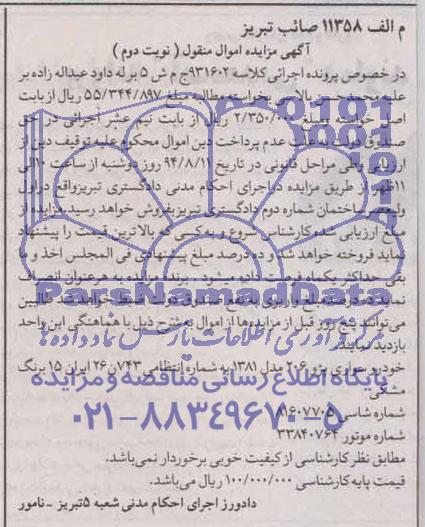 م الف ۱۱۳۵۸ صائب تبریز
آگهی مزایده اموال منقول ( نوبت دوم )
در خصوص پرونده اجرائی کلاسه ۹۳۱۶۰۲ج م ش ۵ برله داود عبداله زاده بر
علیه محمدحسن بخواسته مطالبه مبلغ ۵۵/۳۴۴/۸۹۷ ریال از بابت
اصل خواسته و مبلغ ۲/۳۵۰/۰۰۰ ریال از بابت نیم عشر اجرائی در حق
صندوق دولت به علت عدم پرداخت دین اموال محکوم علیه توقیف دین از
ارزیابی وطی مراحل قانونی در تاریخ ۹۴/۸/۱۱ روز دوشنبه از ساعت ۱۰الی
۱۱ظهر از طریق مزایده در اجرای احکام مدنی دادگستری تبریزواقع دراول
ولیعصر ساختمان شماره دوم دادگستری تبریز بفروش خواهد رسید.مزایده از
مبلغ ارزیابی شده کارشناس شروع و به کسی که بالاترین قیمت را پیشنهاد
نماید فروخته خواهد شد و ده درصد مبلغ پیشنهادی فی المجلس اخذ و ما
بقی حداکثر یکماه فرصت داده میشود. برنده مزایده به هر عنوان انصراف
نماید ده درصد مبلغ واریزی به نفع صندوق دولت ضبط خواهد شد. طالبین
می توانند پنج روز قبل از مزایده از اموال به شرح ذیل با هماهنگی این واحد
بازدید نمایند.
خودرو سواری پژو ۲۰۶ مدل ۱۳۸۱ به شماره انتظامی ۷۴۳ن۲۶ ایران ۱۵ برنگ
مشکی
شماره شاسی ۸۱۶۰۷۷۰۵
شماره موتور ۳۳۸۴۰۷۶۴
مطابق نظر کارشناسی از کیفیت خوبی برخوردار نمی‌باشد.
قیمت پایه کارشناسی ۱۰۰/۰۰۰/۰۰۰ ریال می‌باشد.
دادورز اجرای احکام مدنی شعبه ۵تبریز - نامور
ParsNamadData
مرکز فرآوری اطلاعات پارس نماد داده ها
پایگاه اطلاع رسانی مناقصه و مزایده
۰۲۱-۸۸۳۴۹۶۷۰-۵